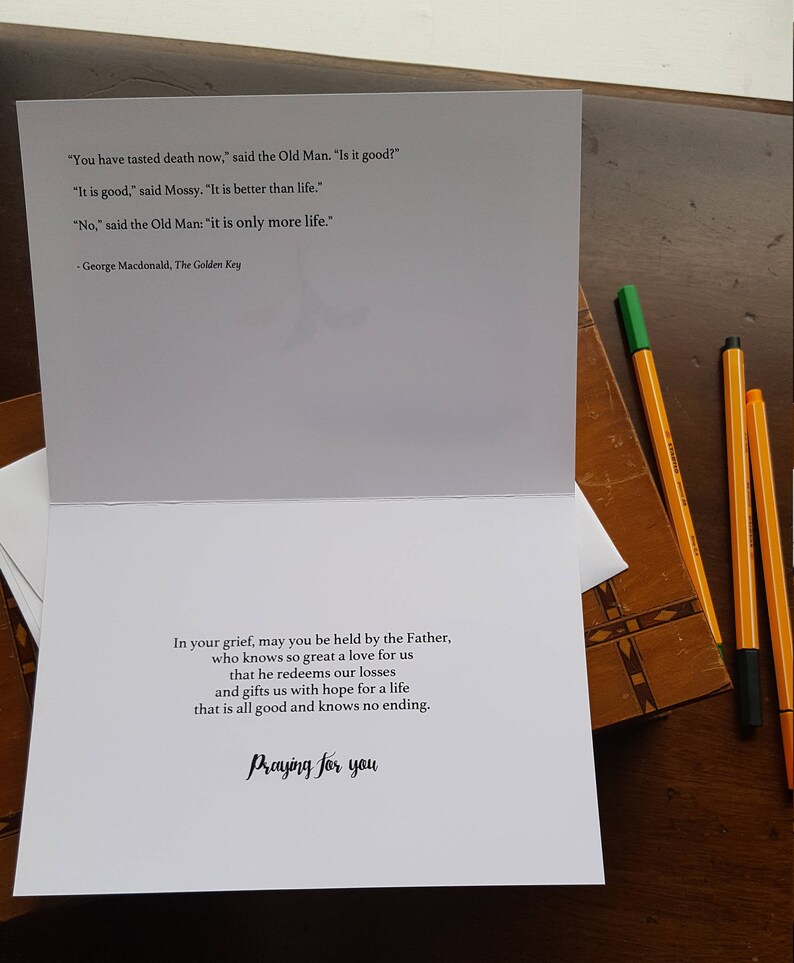 “You have tasted death now,” said the Old Man. “Is it good?”
“It is good,” said Mossy. “It is better than life.”
“No,” said the Old Man: “it is only more life.”
- George Macdonald, The Golden Key
In your grief, may you be held by the Father,
who knows so great a love for us
that he redeems our losses
and gifts us with hope for a life
that is all good and knows no ending.
Praying for you
STABILO